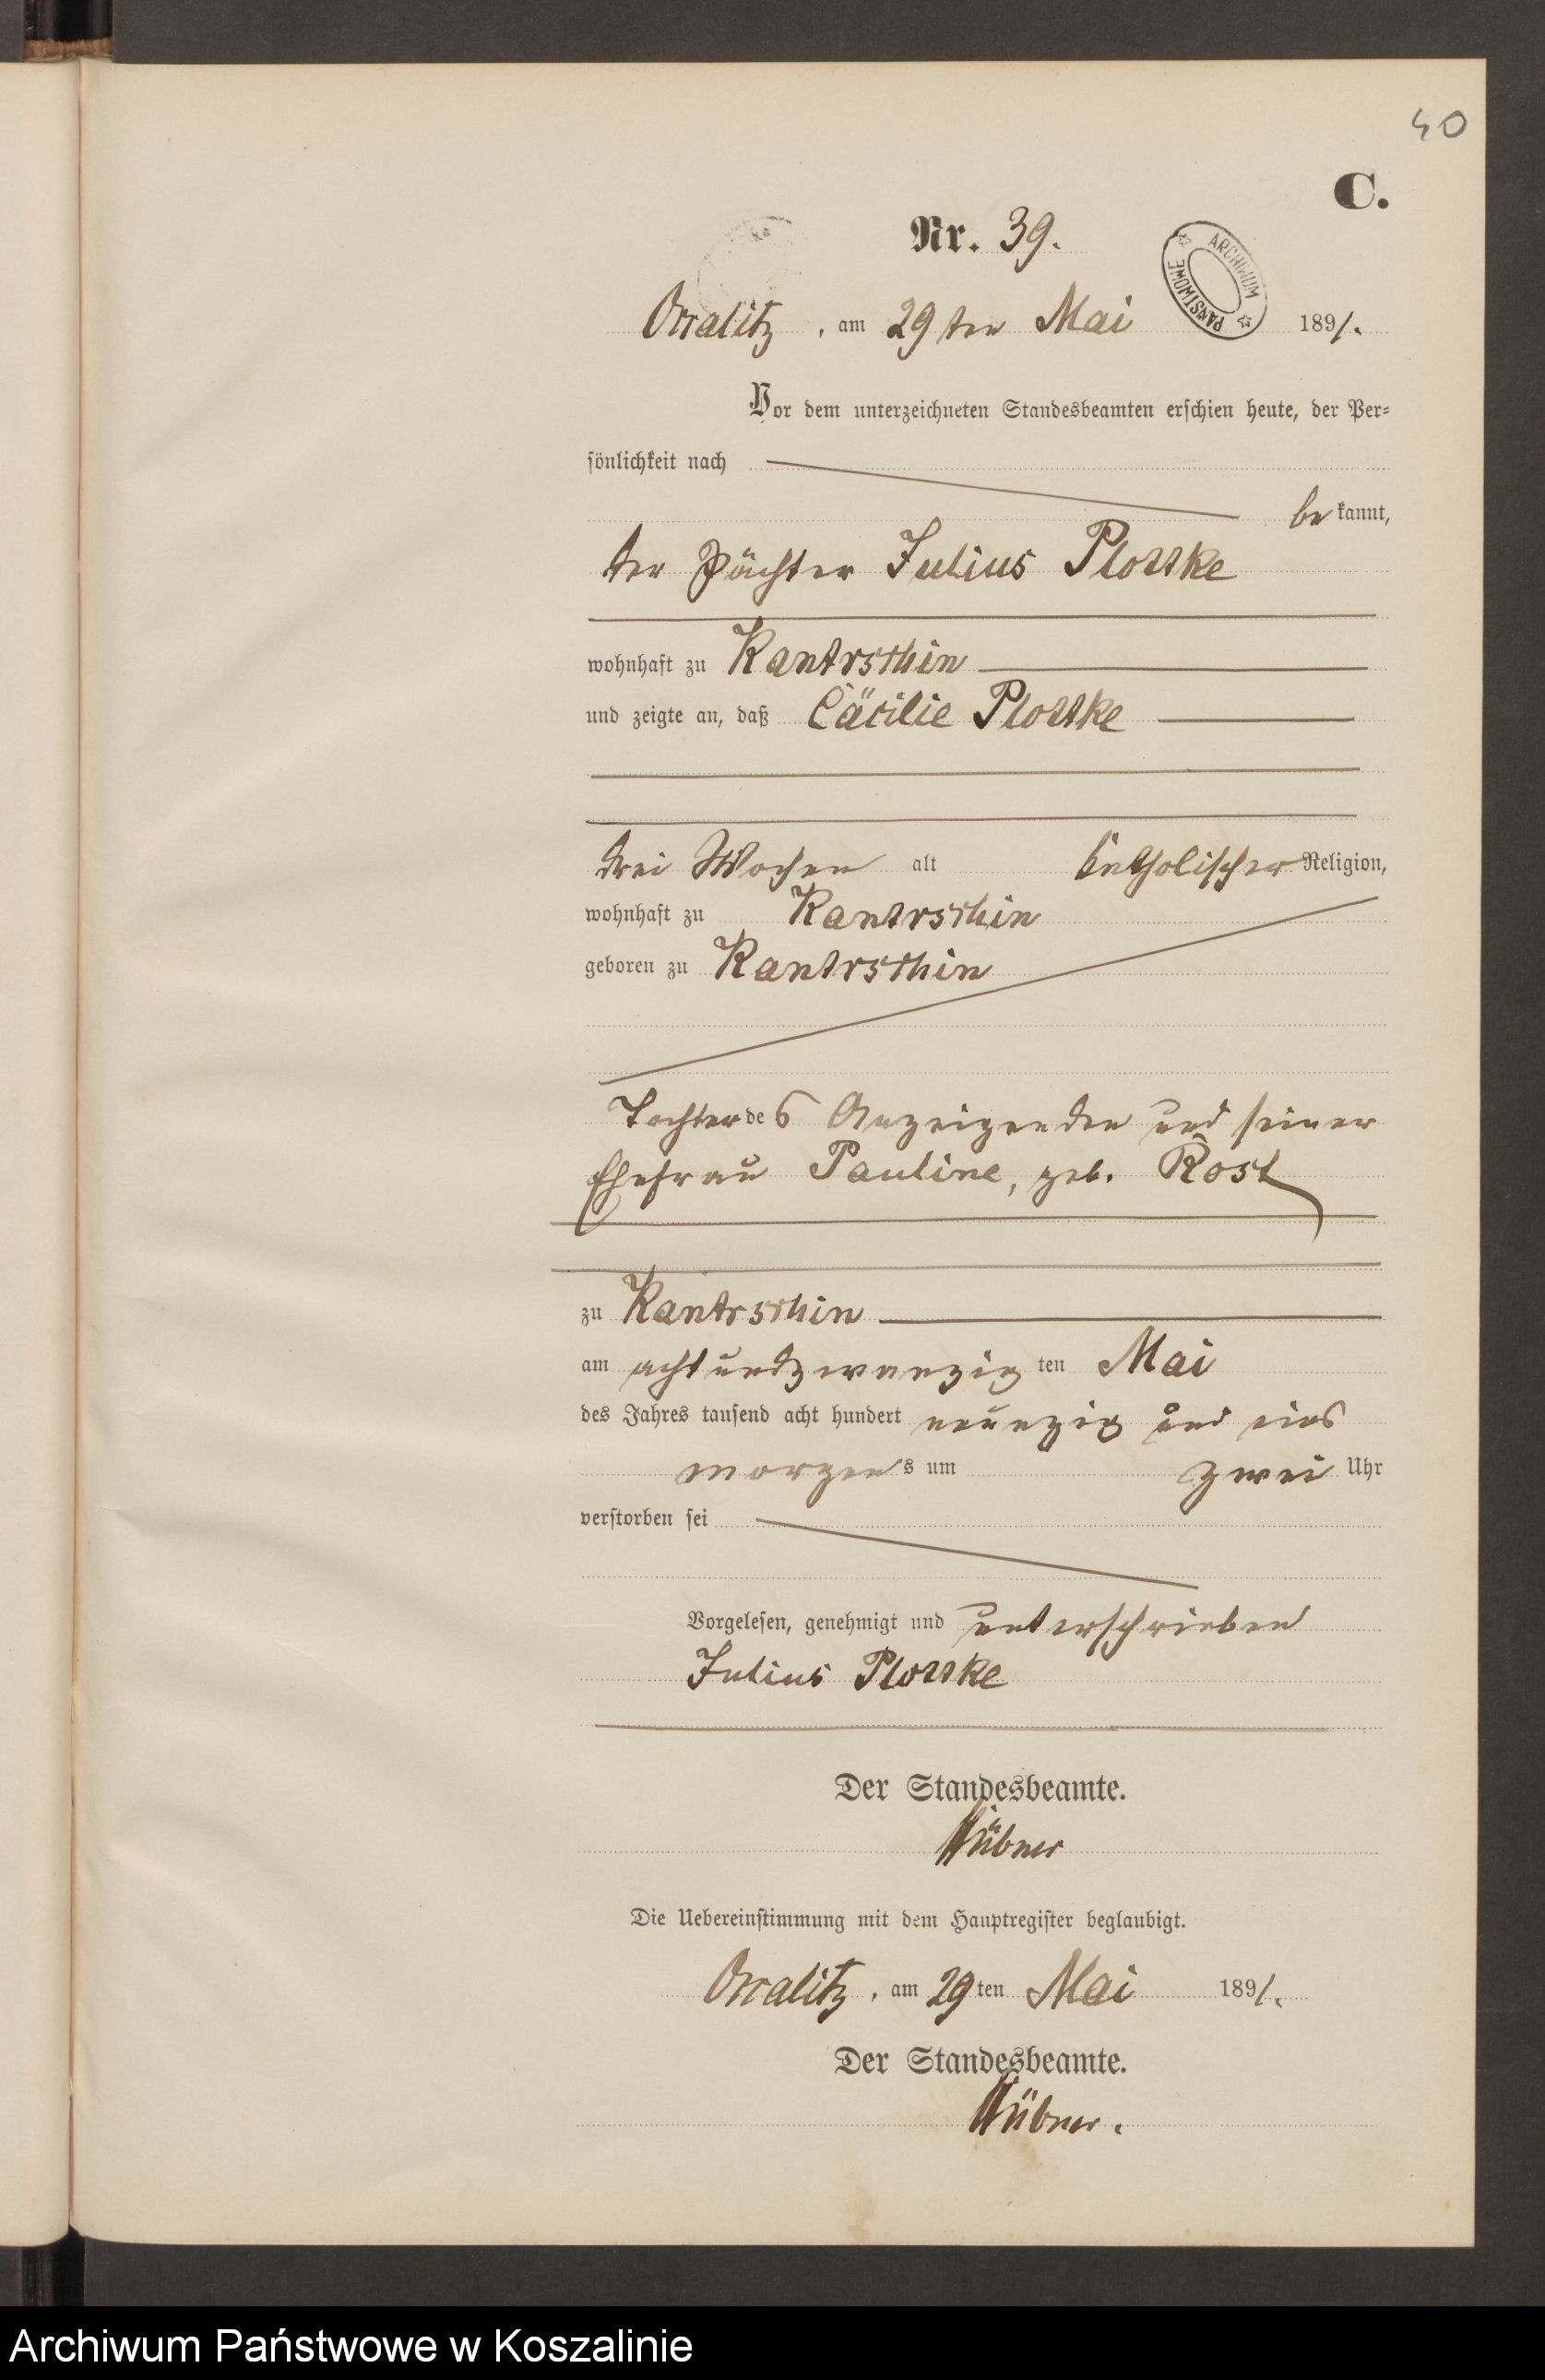 40
C.
Nr. 39.
ARCHIWUM PAŃSTWOWE
Ossalitz, am 29ten Mai 1891.
Vor dem unterzeichneten Standesbeamten erschien heute, der Per-
sönlichkeit nach
bekannt,
der Pächter Julius
wohnhaft zu Kantrschin
und zeigte an, daß Cäcilie
drei Wochen alt katholischer Religion,
wohnhaft zu Kantrschin
geboren zu Kantrschin
Tochter des Anzeigenden und seiner
Ehefrau Pauline, geb. Rost
zu Kantrschin
am achtundzwanzigten Mai
des Jahres tausend acht hundert neunzig und eins
morgens um zwei Uhr
verstorben sei
Vorgelesen, genehmigt und unterschrieben
Julius
Der Standesbeamte.
Hübner
Die Uebereinstimmung mit dem Hauptregister beglaubigt.
Ossalitz, am 29ten Mai 1891.
Der Standesbeamte.
Hübner.
Archiwum Państwowe w Koszalinie